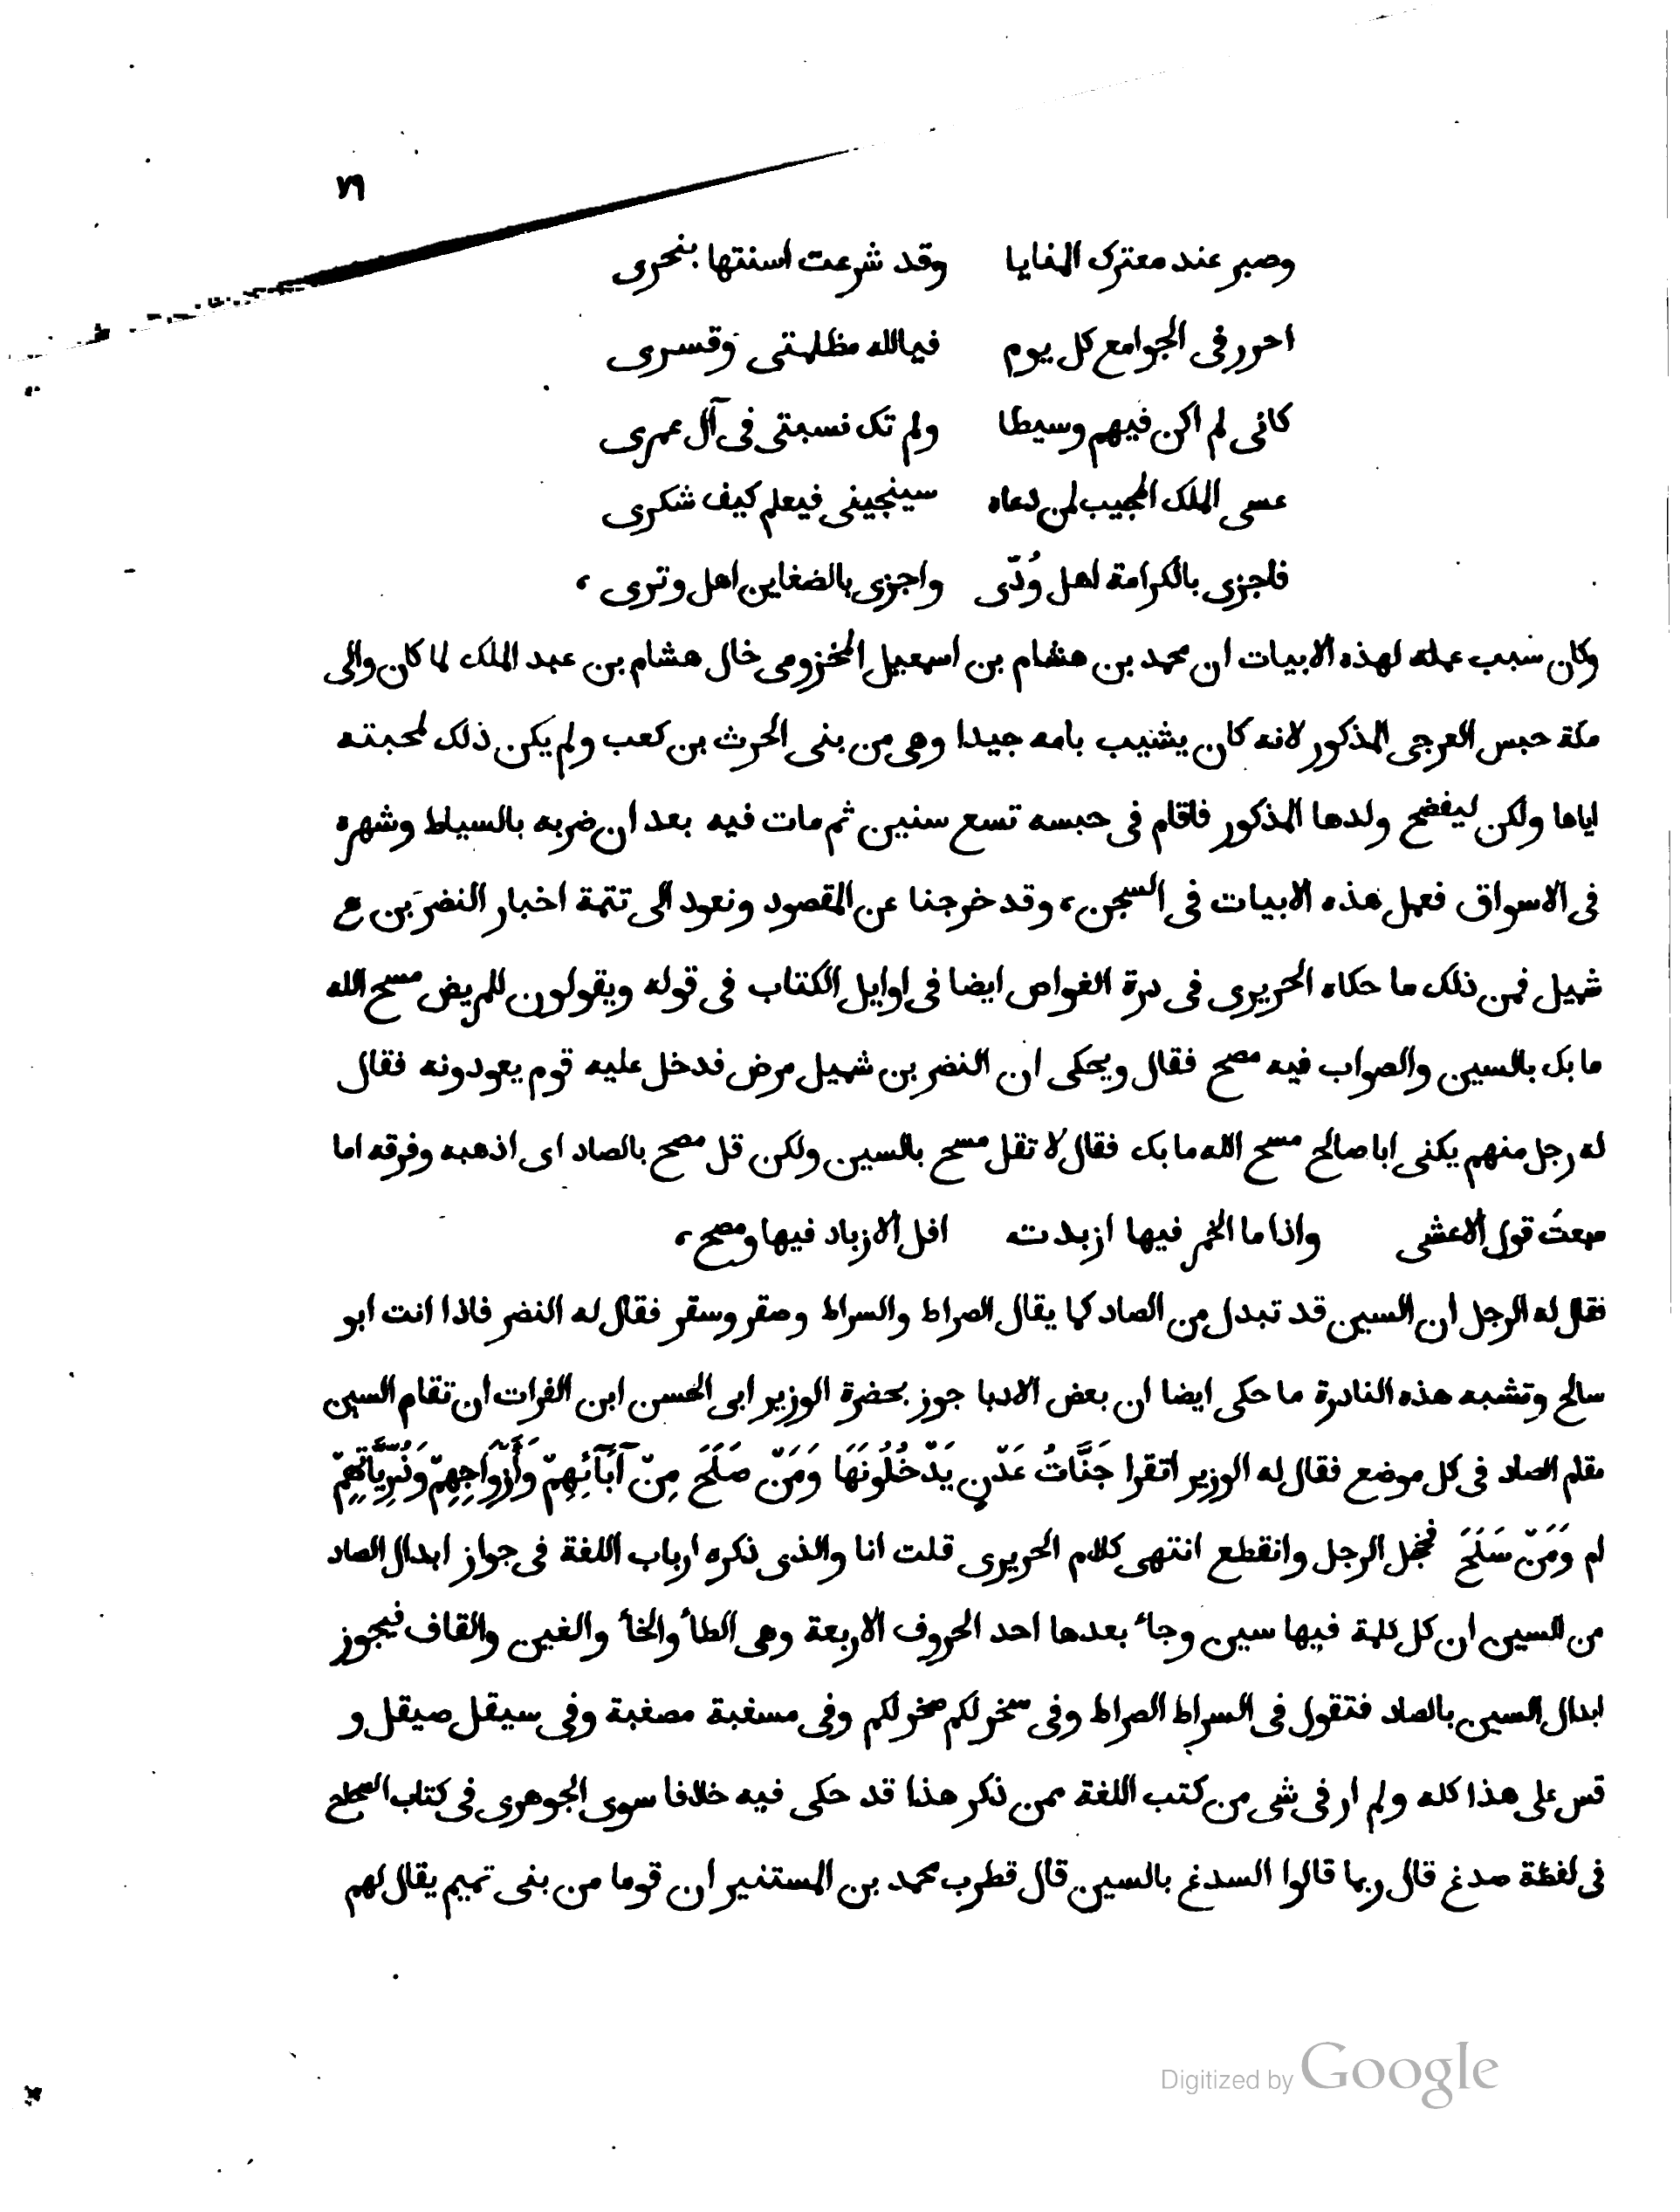 ٧٩
وصبر عند معترك المنايا وقد شرعت اسنتها بنحرى
احرر فى الجوامع كل يوم فيالله مظلمتى وقسرى
كانى لم اكن فيهم وسيطا ولم تك نسبتى فى آل عمرى
عسى الملك المجيب لمن دعاه سينجينى فيعلم كيف شكرى
فاجزى بالكرامة اهل وُدّى واجزى بالضغاين اهل وترى ،
وكان سبب عمله لهذه الابيات ان محمد بن هشام بن اسمعيل المخزومى خال هشام بن عبد الملك لما كان والى
مكة حبس العرجى المذكور لانه كان يشبب بامه جيدا وهى من بنى الحرث بن كعب ولم يكن ذلك لمحبته
اياها ولكن ليفضح ولدها المذكور فاقام فى حبسه تسع سنين ثم مات فيه بعد ان ضربه بالسياط وشهره
فى الاسواق فعمل هذه الابيات فى السجن ، وقد خرجنا عن المقصود ونعود الى تتمة اخبار النضر بن
شميل فمن ذلك ما حكاه الحريرى فى درة الغواص ايضا فى اوايل الكتاب فى قوله ويقولون للمريض مسح الله
ما بك بالسين والصواب فيه مصح فقال ويحكى ان النضر بن شميل مرض فدخل عليه قوم يعودونه فقال
له رجل منهم يكنى ابا صالح مسح الله ما بك فقال لا تقل مسح بالسين ولكن قل مصح بالصاد اى اذهبه وفرقه اما
سمعت قول الاعشى واذا ما الخمر فيها ازبدت افل الازباد فيها ومصح ،
فقال له الرجل ان السين قد تبدل من الصاد كما يقال الصراط والسراط وصقر وسقر فقال له النضر فاذا انت ابو
سالح وتشبه هذه النادرة ما حكى ايضا ان بعض الادبا جوز بحضرة الوزير ابى الحسن ابن الفرات ان تقام السين
مقام الصاد فى كل موضع فقال له الوزير اتقرا جَنَّاتُ عَدْنٍ يَدْخُلُونَهَا وَمَنْ صَلَحَ مِنْ آبَآئِهِمْ وَأَزْوَاجِهِمْ وَذُرِّيَّاتِهِمْ
ام وَمَنْ سَلَحَ فخجل الرجل وانقطع انتهى كلام الحريرى قلت انا والذى ذكره ارباب اللغة فى جواز ابدال الصاد
من السين ان كل كلمة فيها سين وجاء بعدها احد الحروف الاربعة وهى الطاء والخاء والغين والقاف فيجوز
ابدال السين بالصاد فتقول فى السراط الصراط وفى سخر لكم صخر لكم وفى مسغبة مصغبة وفى سيقل صيقل و
قس على هذا كله ولم ار فى شى من كتب اللغة ممن ذكر هذا قد حكى فيه خلافا سوى الجوهرى فى كتاب الصحاح
فى لفظة صدغ قال ربما قالوا السدغ بالسين قال قطرب محمد بن المستنير ان قوما من بنى تميم يقال لهم
Digitized by Google